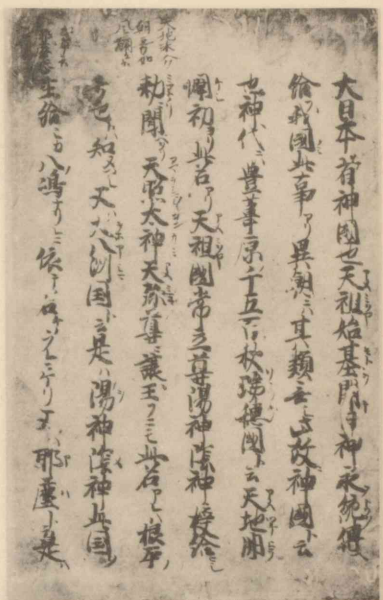 大日本者神國也天祖始基開キ日神永統傳
給我國此事アリ異朝ニハ其類无此故神國ト云
也神代ニハ豊葦原千五百秋瑞穂國ト云天地開
闢初ヨリ此名アリ天祖國常立尊陽神陰神授給シ
勅聞ヘタリ天照太神天孫尊譲玉フニモ此名アレ根本ノ
号也トハ知ヌヘシ又ハ大八洲国ト云是ハ陽神陰神此国ヲ
生給シカ八嶋ナリシニ依テ名ケラレタリ又ハ耶麻土ト云是ハ